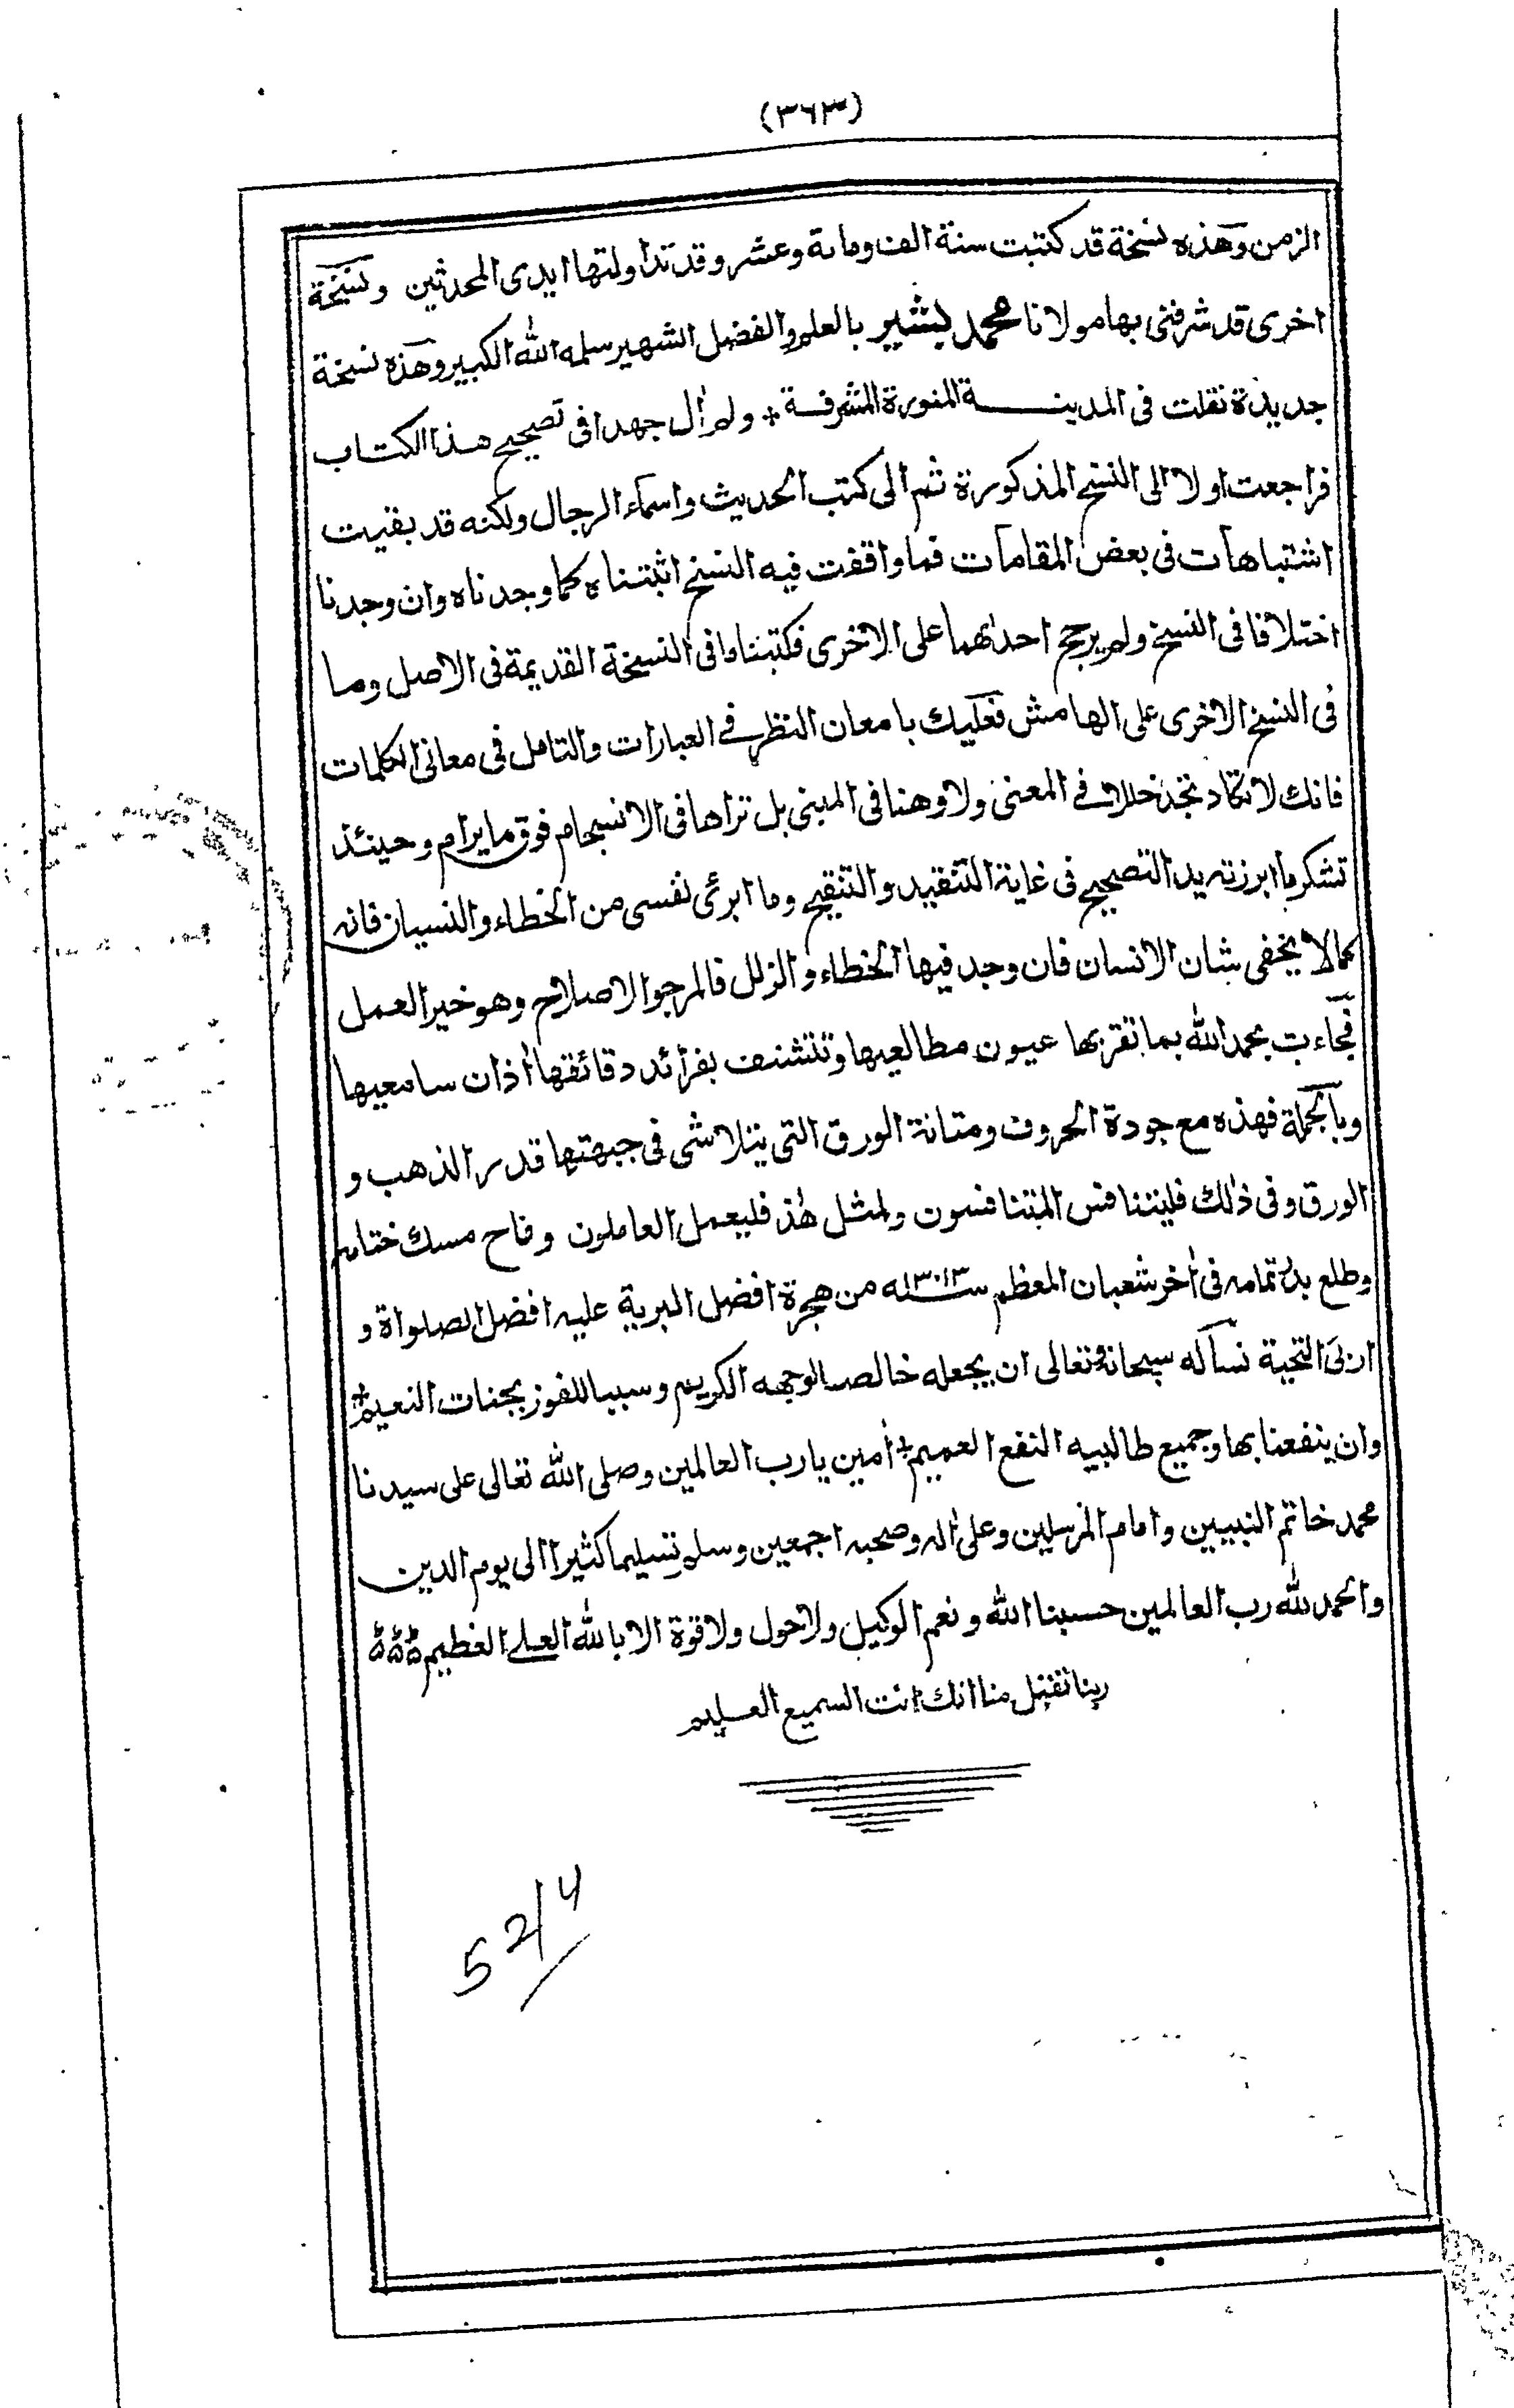 (٣٦٣)
الزمن وهذه نسخة قد كتبت سنة الف ومائة وعشر وقد تداولتها ايدى المحدثين ونسخة
اخرى قد شرفنى بها مولانا محمد بشير بالعلم والفضل الشهير سلمه الله الكبير وهذه نسخة
جديدة نقلت فى المدينة المنورة المشرفة * ولم اٰل جهدا فى تصحيح هذا الكتاب
فراجعت اولا الى النسخ المذكورة ثم الى كتب الحديث واسماء الرجال ولكنه قد بقيت
اشتباهات فى بعض المقامات فما وافقت فيه النسخ اثبتناه كما وجدناه وان وجدنا
اختلافا فى النسخ ولم يرجح احدٰهما على الاخرى فكتبنا ما فى النسخة القديمة فى الاصل وما
فى النسخ الاخرى على الهامش فعليك بامعان النظر فى العبارات والتامل فى معانى الكلمات
فانك لا تكاد تجد خللا فى المعنى ولا وهنا فى المبنى بل تراها فى الانسجام فوق ما يرام وحينئذ
تشكر ما ابرزته يد التصحيح فى غاية التنقيد والتنقيح وما ابرئ نفسى من الخطاء والنسيان فانه
كما لا يخفى بشان الانسان فان وجد فيها الخطاء والزلل فالمرجو الاصلاح وهو خير العمل
فجاءت بحمد الله بما تقر بها عيون مطالعيها وتتشنف بفرائد دقائقها اٰذان سامعيها
وبالجملة فهذه مع جودة الحروف ومتانة الورق التى يتلاشى فى جبهتها قدر الذهب و
الورق وفى ذٰلك فليتنافس المتنافسون ولمثل هٰذ فليعمل العاملون وفاح مسك ختامه
وطلع بدر تمامه فى اٰخر شعبان المعظم سنه ١٣٠١٣ه من هجرة افضل البرية عليه افضل الصلواة و
ازبى التحية نساله سبحانه وتعالى ان يجعله خالصا لوجهه الكريم وسببا للفوز بجنات النعيم *
وان ينفعنا بها وجميع طالبيه النفع العميم * اٰمين يارب العالمين وصلى الله تعالى على سيدنا
محمد خاتم النبيين وامام المرسلين وعلى اٰله وصحبه اجمعين وسلم تسليما كثيرا الى يوم الدين
والحمد لله رب العالمين حسبنا الله ونعم الوكيل ولا حول ولا قوة الا بالله العلى العظيم
ربنا تقبل منا انك انت السميع العليم